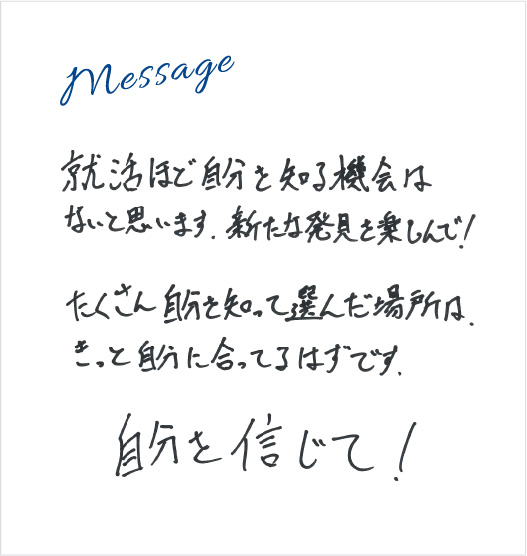 Message
就活ほど自分を知る機会は
ないと思います. 新たな発見を楽しんで!
たくさん自分を知って選んだ場所は.
きっと自分に合ってるはずです.
自分を信じて!